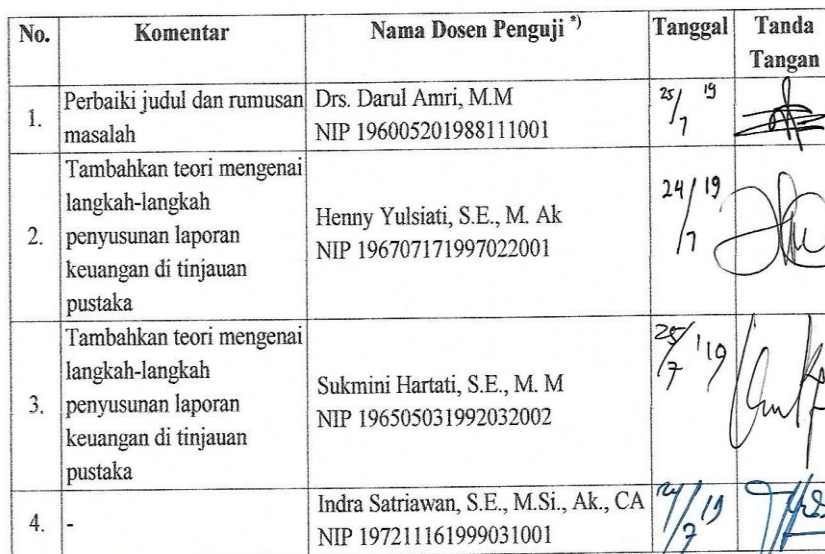 No. Komentar Nama Dosen Penguji *) Tanggal Tanda
Tangan
1. Perbaiki judul dan rumusan
masalah
Drs. Darul Amri, M.M
NIP 196005201988111001
25/7 19
2. Tambahkan teori mengenai
langkah-langkah
penyusunan laporan
keuangan di tinjauan
pustaka
Henny Yulsiati, S.E., M. Ak
NIP 196707171997022001
24/7 19
3. Tambahkan teori mengenai
langkah-langkah
penyusunan laporan
keuangan di tinjauan
pustaka
Sukmini Hartati, S.E., M. M
NIP 196505031992032002
25/7 '19
4. -
Indra Satriawan, S.E., M.Si., Ak., CA
NIP 197211161999031001
24/7 19